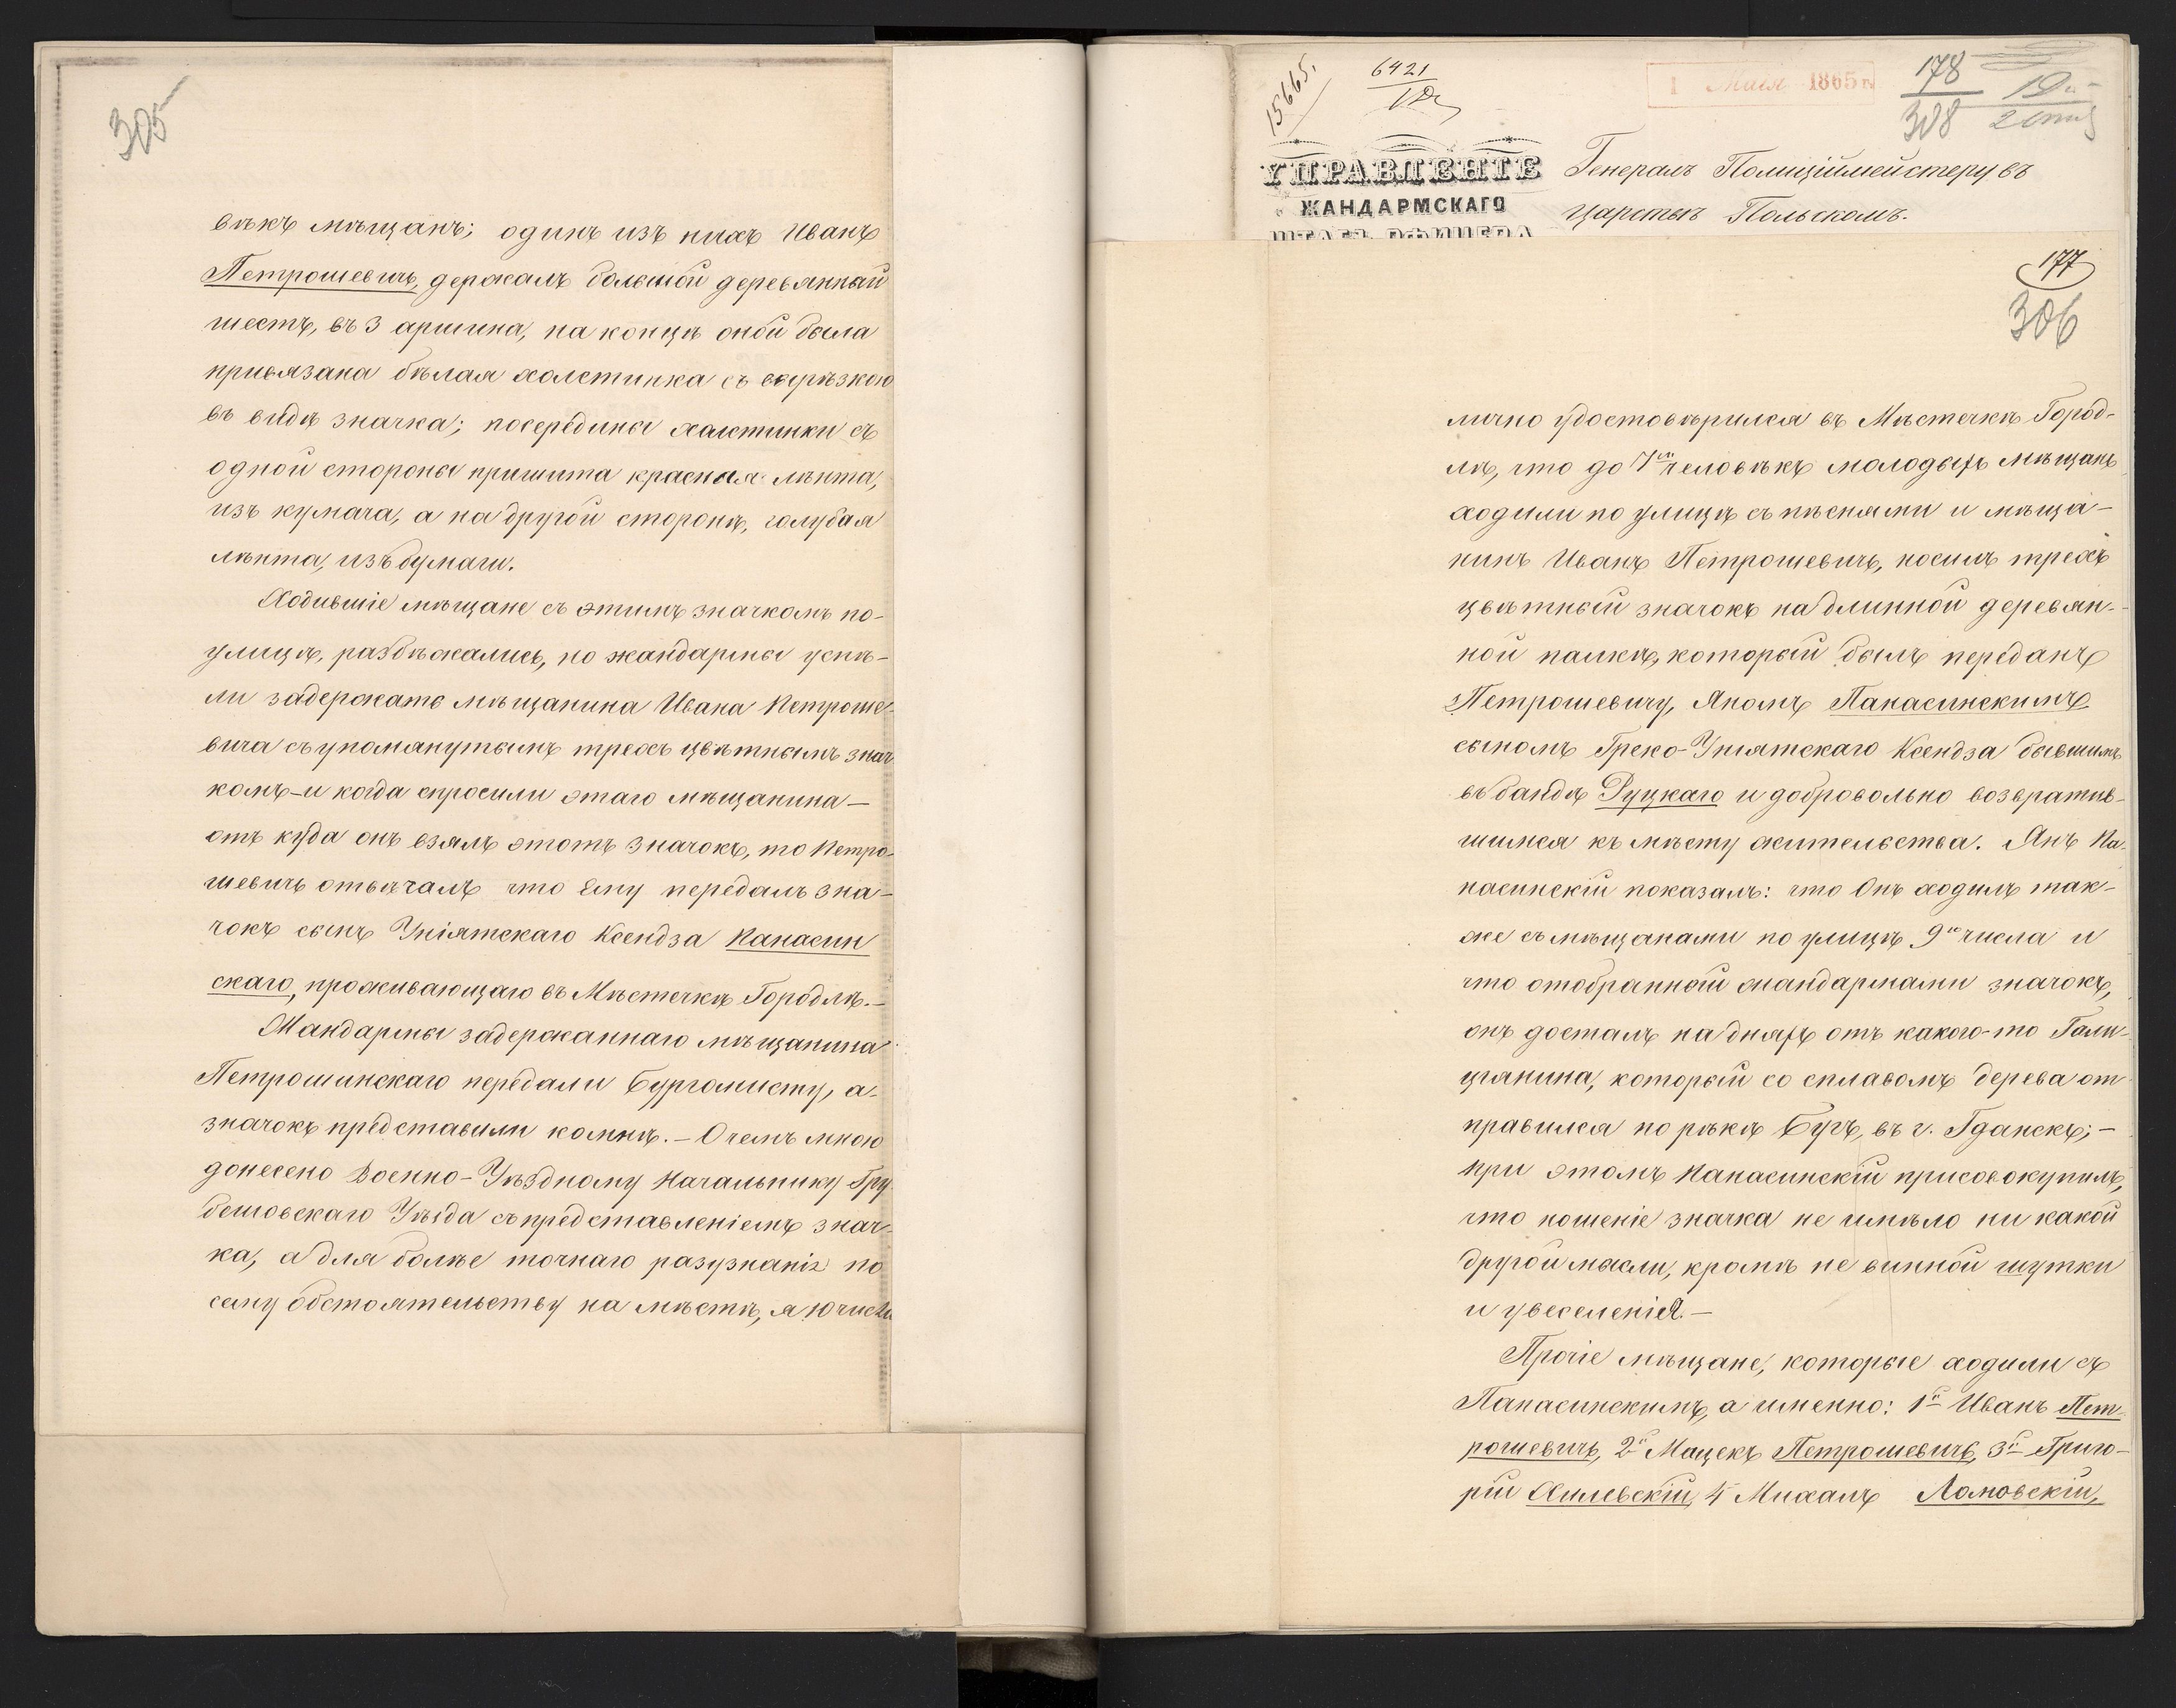 305
вѣкъ мѣщанъ; одинъ изъ нихъ Иванъ
Петрошевичъ, держалъ большой деревянный
шестъ, въ 3 аршина, на концѣ оной была
привязана бѣлая холстинка съ вырѣзкою
въ видѣ значка; посерединѣ холстинки съ
одной стороны пришита красная лѣнта,
изъ кумача, а на другой сторонѣ, голубая
лѣнта, изъ бумаги.
Ходившіе мѣщане съ этимъ значкомъ по-
улицѣ, разбѣжались, но жандармы успѣ-
ли задержать мѣщанина Ивана Петроше-
вича съ упомянутымъ трехъ цвѣтнымъ знач
комъ - и когда спросили этаго мѣщанина -
отъ куда онъ взялъ этотъ значокъ, то Петро-
шевичъ отвѣчалъ что Ему передалъ зна-
чокъ сынъ Уніятскаго Ксендза Панасин
скаго, проживающаго въ Мѣстечкѣ Городлѣ. -
Жандармы задержаннаго мѣщанина
Петрошинскаго передали Бургомисту, а-
значокъ представили комнѣ. - О чемъ мною
донесено Военно-Уѣздному Начальнику Гру
бешовскаго Уѣзда съ представленіемъ знач-
ка, а для болѣе точнаго разузнанія по
сему обстоятельству на мѣстѣ, я 10 числа
15665.
6421
1 Мая 1865 г.
178
308
УПРАВЛЕНІЕ
ЖАНДАРМСКАГО
ШТАБЪ ОФИЦЕРА
Генералъ Полиціймейстеру въ
Царствѣ Польскомъ.
177
306
лично удостовѣрился въ Мѣстечкѣ Город-
лѣ, что до 7ми человѣкъ молодыхъ мѣщанъ
ходили по улицѣ съ пѣснями и мѣща-
нинъ Иванъ Петрошевичъ, носилъ трехъ
цвѣтный значокъ на длинной деревян-
ной палкѣ, который былъ переданъ
Петрошевичу, Яномъ Панасинскимъ
сыномъ Греко-Уніятскаго Ксендза бывшимъ
въ бандѣ Руцкаго и добровольно возвратив-
шимся къ мѣсту жительства. Янъ Па-
насинскій показалъ: что Онъ ходилъ так-
же съ мѣщанами по улицѣ 9го числа и
что отобранный жандармами значокъ,
онъ досталъ на дняхъ отъ какого-то Гали-
цянина, который со сплавомъ дерева от
правился по рѣкѣ Бугъ, въ г. Гданскъ; -
при этомъ Панасинскій присовокупилъ,
что ношеніе значка не имѣло ни какой
другой мысли, кромѣ не винной шутки
и увеселенія. -
Прочіе мѣщане, которые ходили съ
Панасинскимъ, а именно: 1й Иванъ Пет-
рошевичъ, 2й Мацекъ Петрошевичъ, 3й Григо-
рій Хилевскій, 4 Михалъ Ломовскій,